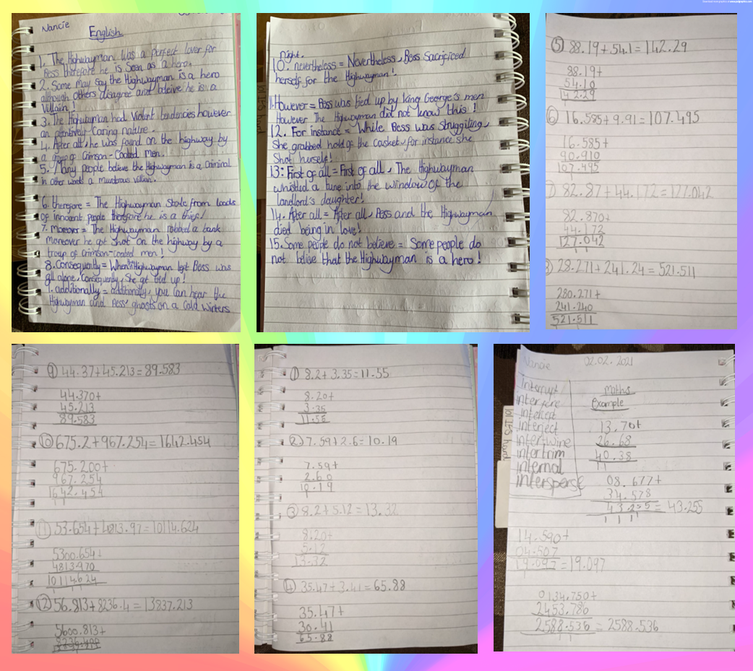 Nancie
English
1. The Highwayman was a perfect lover for
Bess therefore he is seen as a hero.
2. Some may say the Highwayman is a hero
although others disagree and believe he is a
villain!
3. The Highwayman had violent tendencies however
an caring nature.
4. After all, he was found on the highway by
a group of Crimson-Coated men.
5. Many people believe the Highwayman is a criminal
in other words a murderous villain.
6. therefore = The Highwayman stole from loads
of innocent people therefore he is a thief!
7. Moreover = The Highwayman robbed a bank
Moreover he got shot on the highway by a
troop of crimson-coated men!
8. Consequently = When Highwayman left Bess was
all alone, consequently, she got tied up!
9. additionally = additionally, you can hear the
Highwayman and Bess' ghosts on a cold winters
night.
10. nevertheless = Nevertheless, Bess sacrificed
herself for the Highwayman!
11. However = Bess was tied up by King George's men
However The Highwayman did not know this!
12. For Instance = While Bess was struggling,
She grabbed hold of the casket, for instance she
shot herself!
13. First of all = First of all, The Highwayman
whistled a tune into the window of the
landlord's daughter!
14. After all = After all, Bess and the Highwayman
died being in love!
15. Some people do not believe = Some people do
not belive that the Highwayman is a hero!
5 88.19 + 54.1 = 142.29
88.19+
54.10
142.29
6 16.585 + 9.91 = 107.495
16.585+
90.910
107.495
7 82.87 + 44.172 = 127.042
82.870+
44.172
127.042
8 28.271 + 241.24 = 521.511
280.271+
241.240
521.511
9 44.37 + 45.213 = 89.583
44.370+
45.213
89.583
10 675.2 + 967.254 = 1642.454
675.200+
967.254
1642.454
11 53.654 + 4813.97 = 10114.624
5300.654+
4813.970
10114.624
12 56.813 + 8236.4 = 13837.213
5600.813+
1 8.2 + 3.35 = 11.55
8.20+
3.35
11.55
2 7.59 + 2.6 = 10.19
7.59+
2.60
10.19
3 8.2 + 5.12 = 13.32
8.20+
5.12
13.32
4 35.47 + 3.41 = 65.88
35.47+
30.41
65.88
Nancie
02.02.2021
Maths
Example
Interrupt
interfere
Intellect
Interject
intertwine
intertrim
internal
intersperse
13.70+
26.68
40.38
08.677+
34.578
43.255 = 43.255
14.590+
04.507
19.097 = 19.097
0134.750+
2453.786
2588.536 = 2588.536